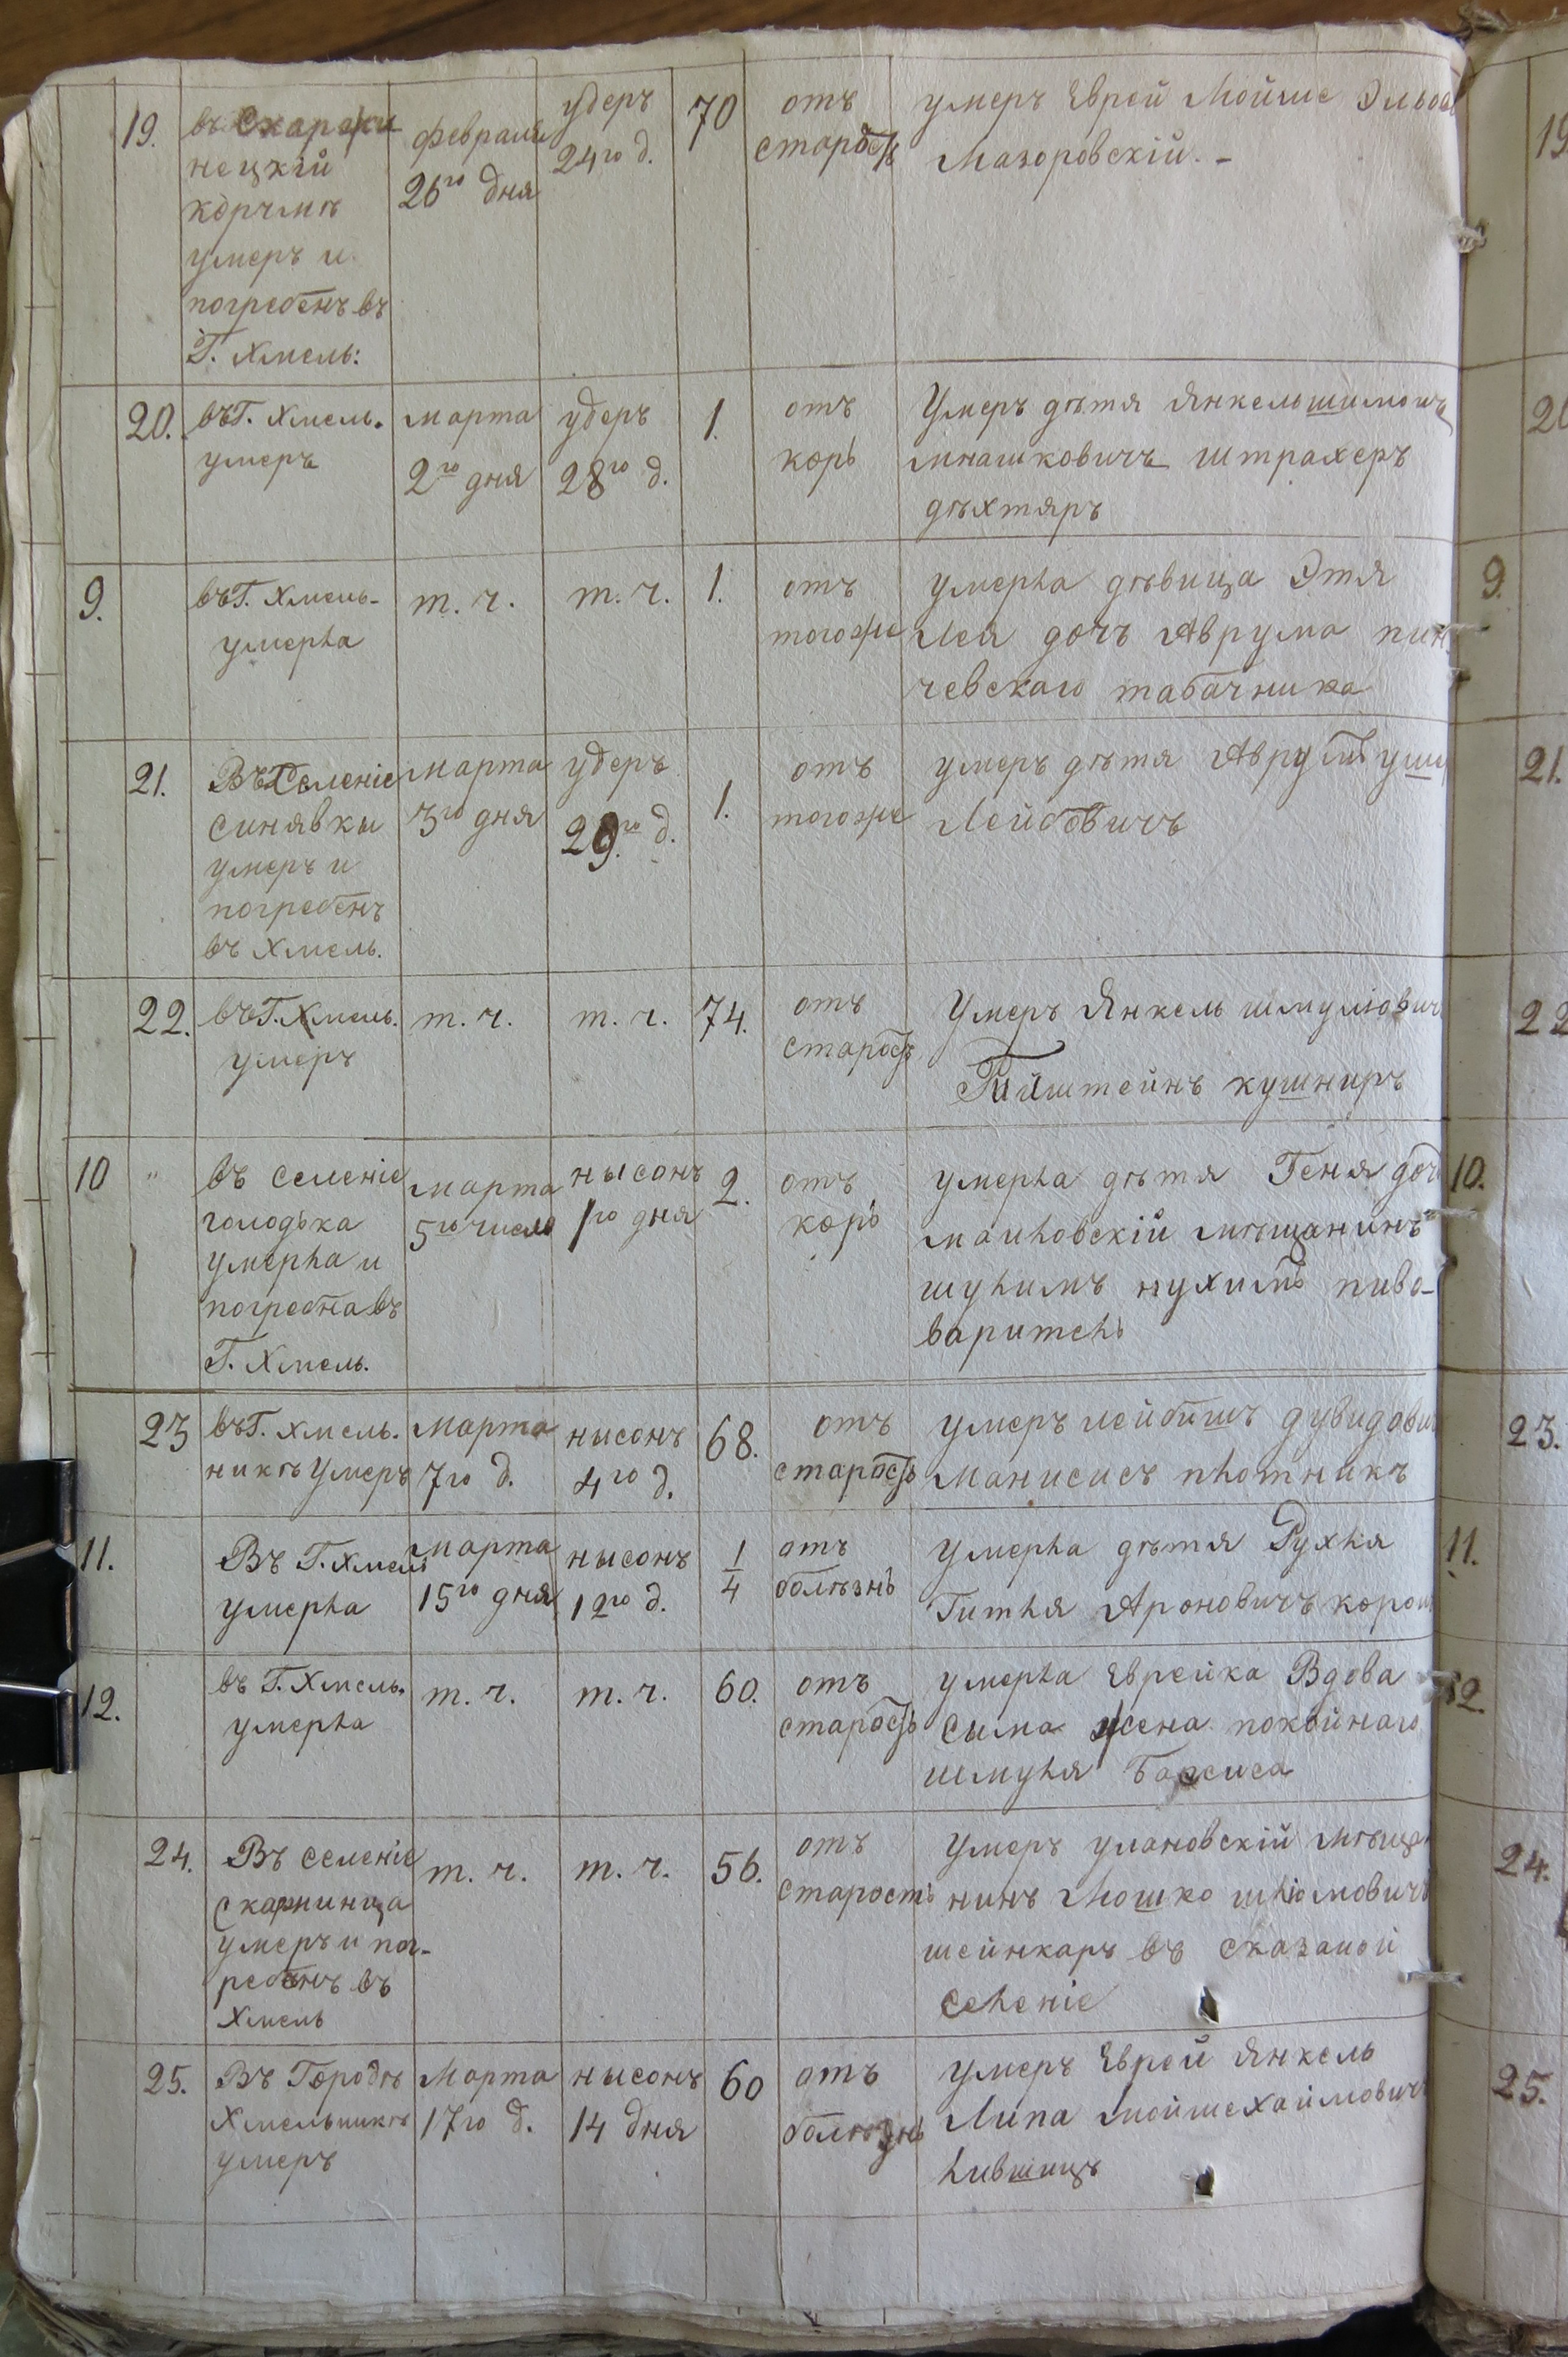 19. въ Скаржи
нецкій
корчмѣ
умеръ и
погребенъ въ
Г. Хмель:
февраля
26го дня
удеръ
24го д.
70
отъ
старость
умеръ Еврей Мойше
Мазоровскій. -
19
20. въ Г. Хмель.
умеръ
марта
2го дня
удеръ
28го д.
1.
отъ
корь
Умеръ дѣтя Янкель шимонъ
мнашковичъ штрахеръ
дѣхтяръ
20
9. въ Г. Хмель-
умерла
т. ч.
т. ч.
1.
отъ
тогоже
умерла дѣвица Этя
Лея дочъ Аврума пин
чевскаго табачника
9.
21. Въ Селеніе
синявкы
умеръ и
погребенъ
въ Хмель.
марта
3го дня
удеръ
29го д.
1.
отъ
тогоже
умеръ дѣтя Аврумъ
Лейбовичъ
21.
22. въ Г. Хмель.
умеръ
т. ч.
т. ч.
74.
отъ
старость
Умеръ Янкель шмулювич
кушниръ
22
10 "
въ селеніе
голодька
умерла и
погребна въ
Г. Хмель.
марта
5го число
нысонъ
1го дня
2.
отъ
корь
умерла дѣтя Геня доч
маиловскій мѣщанинъ
шулимъ нухимъ пиво-
варитель
10.
23 въ Г. Хмель.
никѣ умеръ
марта
7го д.
нысонъ
4го д.
68.
отъ
старость
умеръ лейбишъ дувидови
манисисъ плотникъ
23.
11. Въ Г. Хмель
умерла
марта
15го дня
нысонъ
12го д.
1/4
отъ
болѣзнь
умерла дѣтя Рухля
Гитля Ароновичъ
11.
12. въ Г. Хмель.
умерла
т. ч.
т. ч.
60.
отъ
старость
умерла Еврейка Вдова
сыма жена покойнаго
шмуля Барсиса
12.
24. Въ селеніе
скаржинца
умеръ и пог-
ребенъ въ
Хмель
т. ч.
т. ч.
56.
отъ
старость
Умеръ улановскій мѣща
нинъ Мошко шлюмовичъ
шейнкаръ въ сказаной
селеніе
24.
25. Въ Городѣ
Хмельникѣ
умеръ
Марта
17го д.
нысонъ
14 дня
60
отъ
болѣзнь
умеръ Еврей Янкель
Липа мойшехаймович
лившицъ
25.